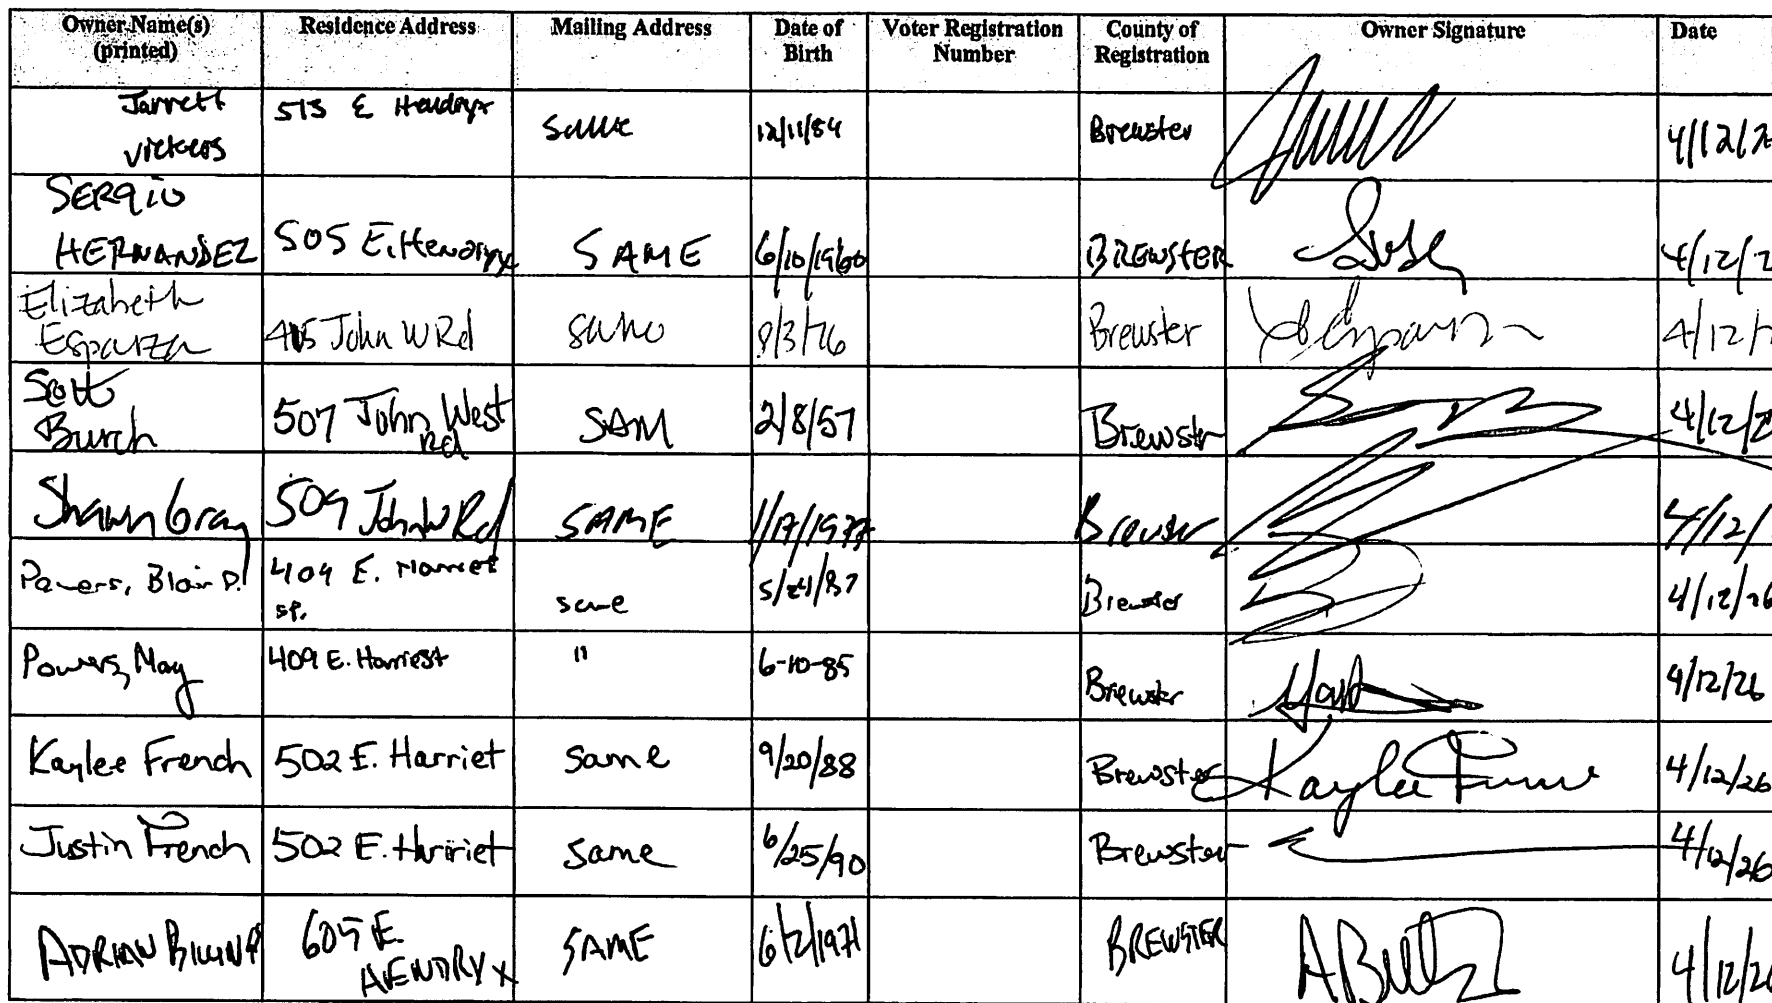 Owner Name(s) (printed) Residence Address Mailing Address Date of Birth Voter Registration Number County of Registration Owner Signature Date
Jarrett Vickers 513 E Hendryx same 12/11/84 Brewster 4/12/2
SERGIO HERNANDEZ 505 E. Hendryx SAME 6/10/1960 BREWSTER 4/12/2
Elizabeth Esparza John W Rd same 8/3/76 Brewster Esparza 4/12/
Scott Burch 507 John West Rd SAM 2/8/57 Brewstr 4/12/2
Shawn Gray 509 John W Rd SAME 1/17/1977 Brewster 4/12/
Powers, Blair D. 409 E. Harriet sp. same 5/24/87 Brewster 4/12/26
Powers, May 409 E. Harriest " 6-10-85 Brewster 4/12/26
Kaylee French 502 E. Harriet same 9/20/88 Brewster Kaylee 4/12/26
Justin French 502 E. Harriet same 6/25/90 Brewster 4/12/26
ADRIAN 605 E. HENDRYX SAME 6/2/1971 BREWSTER 4/12/26